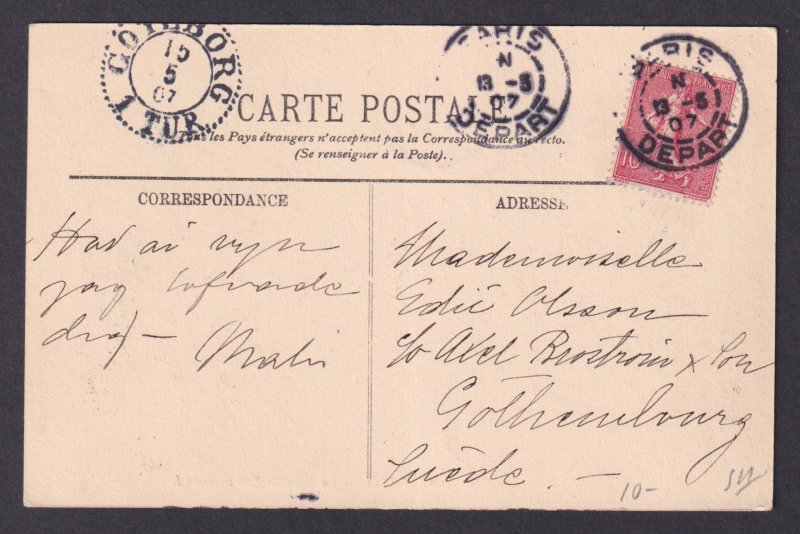 GÖTEBORG
15
5
07
1 TUR.
PARIS
N
13 -5
07
DEPART
PARIS
N
13 -5
07
DEPART
10
CARTE POSTALE
Tous les Pays étrangers n'acceptent pas la Correspondance au recto.
(Se renseigner à la Poste).
CORRESPONDANCE
ADRESSE
jag lofvade
Malin
Mademoiselle
Olsson
c/o Axel Broström & Son
Gothembourg
Suède. —
10-